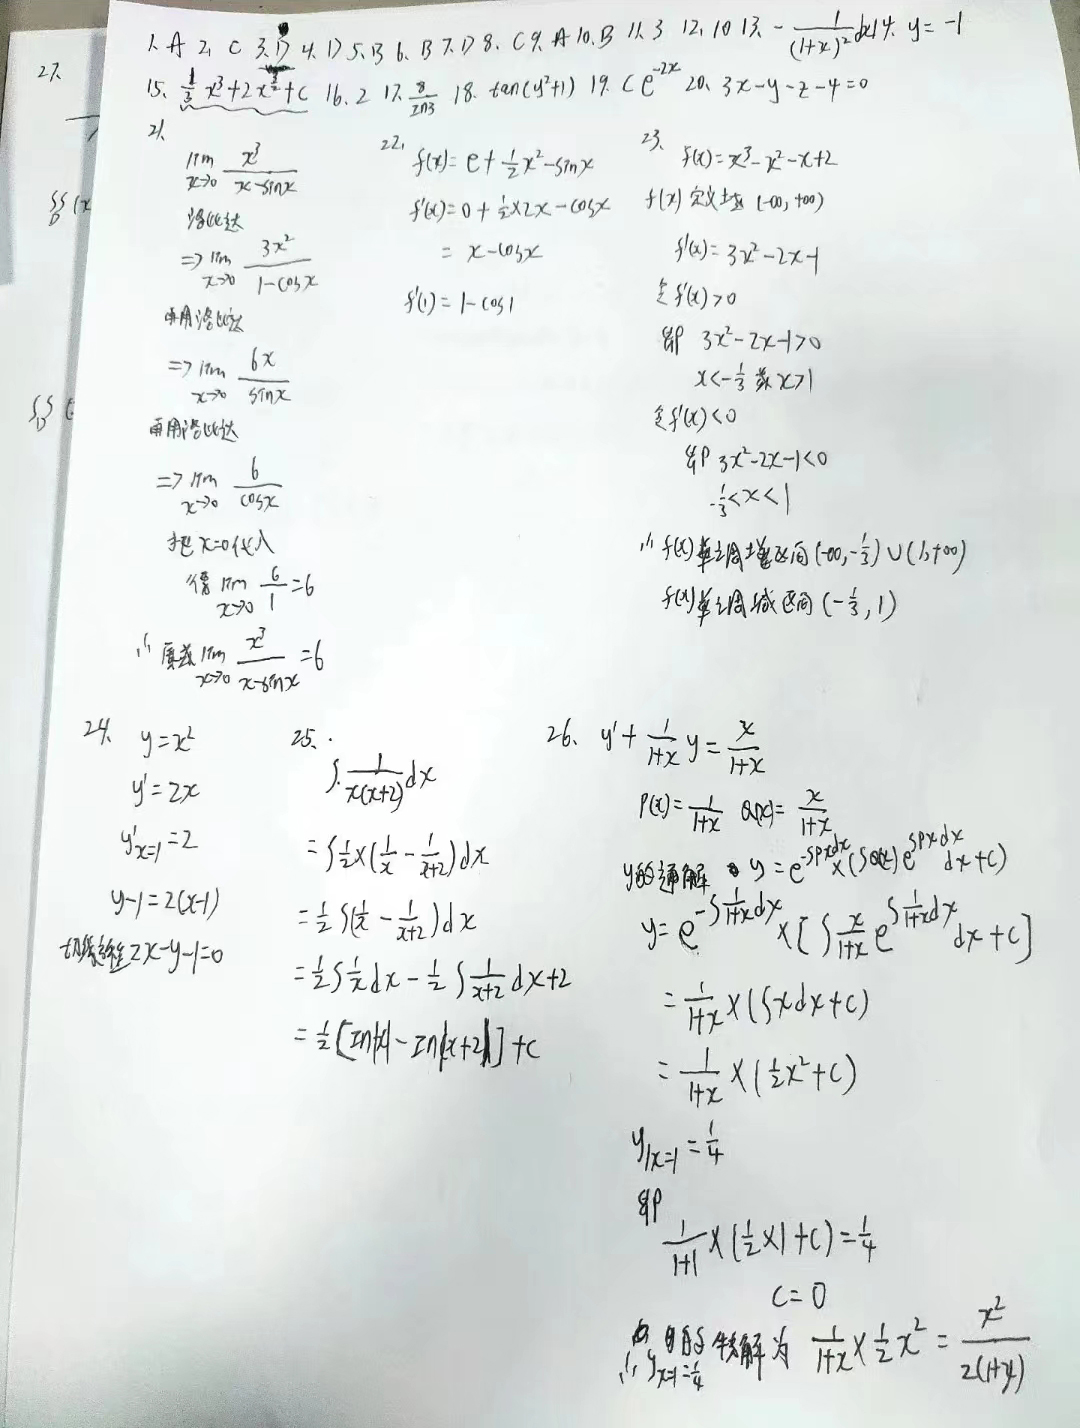 1. A 2. C 3. D 4. D 5. B 6. B 7. D 8. C 9. A 10. B 11. 3 12. 10 13. -1/(1+x)² dx 14. y=-1
15. 1/3 x³+2x^(3/2)+C 16. 2 17. 8/ln3 18. tan(y²+1) 19. Ce^(-2x) 20. 3x-y-z-4=0
21.
lim x→0 x³/(x-sinx)
洛比达
=> lim x→0 3x²/(1-cosx)
再用洛比达
=> lim x→0 6x/sinx
再用洛比达
=> lim x→0 6/cosx
把x=0代入
得 lim x→0 6/1=6
∴ 原式 lim x→0 x³/(x-sinx)=6
22. f(x)=e+1/2x²-sinx
f'(x)=0+1/2×2x-cosx
=x-cosx
f'(1)=1-cos1
23. f(x)=x³-x²-x+2
f(x)定义域(-∞,+∞)
f'(x)=3x²-2x-1
令f'(x)>0
即 3x²-2x-1>0
x<-1/3 或 x>1
令f'(x)<0
即 3x²-2x-1<0
-1/3<x<1
∴ f(x)单调增区间(-∞,-1/3)∪(1,+∞)
f(x)单调减区间(-1/3,1)
24. y=x²
y'=2x
y'x=1=2
y-1=2(x-1)
切线方程2x-y-1=0
25.
∫1/(x(x+2))dx
=∫1/2×(1/x-1/(x+2))dx
=1/2∫(1/x-1/(x+2))dx
=1/2∫1/x dx-1/2∫1/(x+2)dx+2
=1/2[ln|x|-ln|x+2|]+C
26. y'+1/(1+x) y=x/(1+x)
P(x)=1/(1+x) Q(x)=x/(1+x)
y的通解 y=e^(-∫Pxdx)×(∫Q(x)e^(∫Pxdx)dx+C)
y=e^(-∫1/(1+x)dx)×[∫x/(1+x) e^(∫1/(1+x)dx)dx+C]
=1/(1+x)×(∫xdx+C)
=1/(1+x)×(1/2x²+C)
y|x=1=1/4
即
1/(1+1)×(1/2×1+C)=1/4
C=0
∴ yx=1=1/4 的特解为 1/(1+x)×1/2x²=x²/(2(1+x))
27.
∬D(x
∬D(